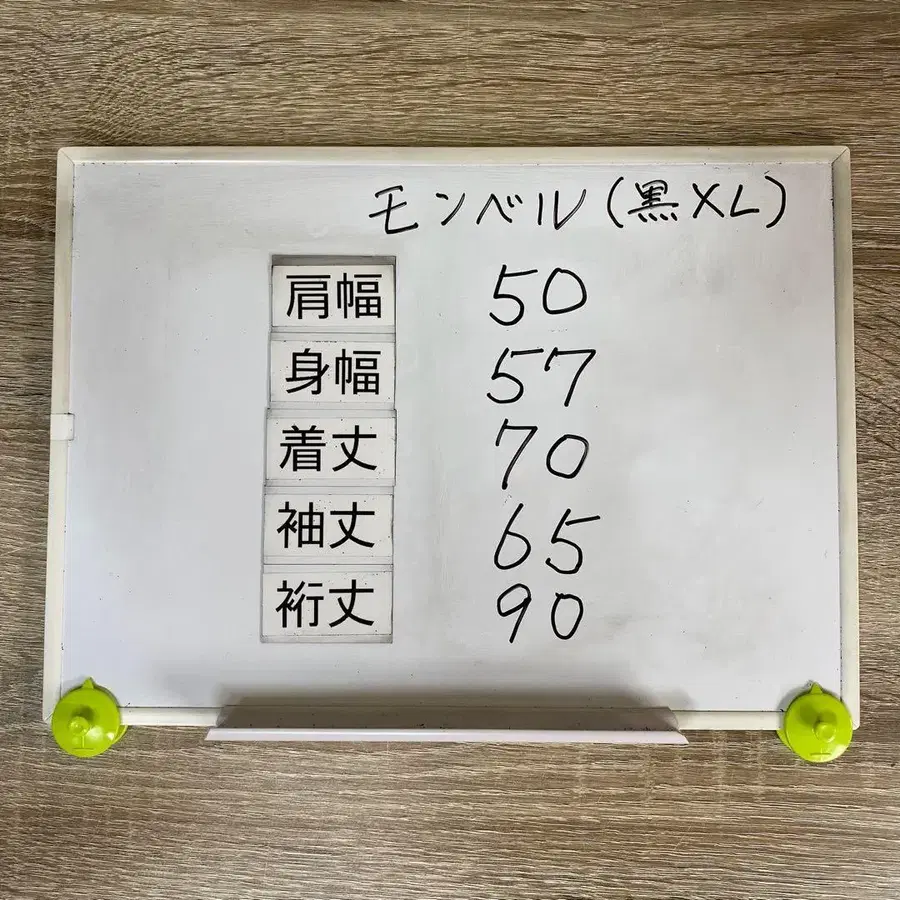 モンベル(黒XL)
肩幅 50
身幅 57
着丈 70
袖丈 65
裄丈 90